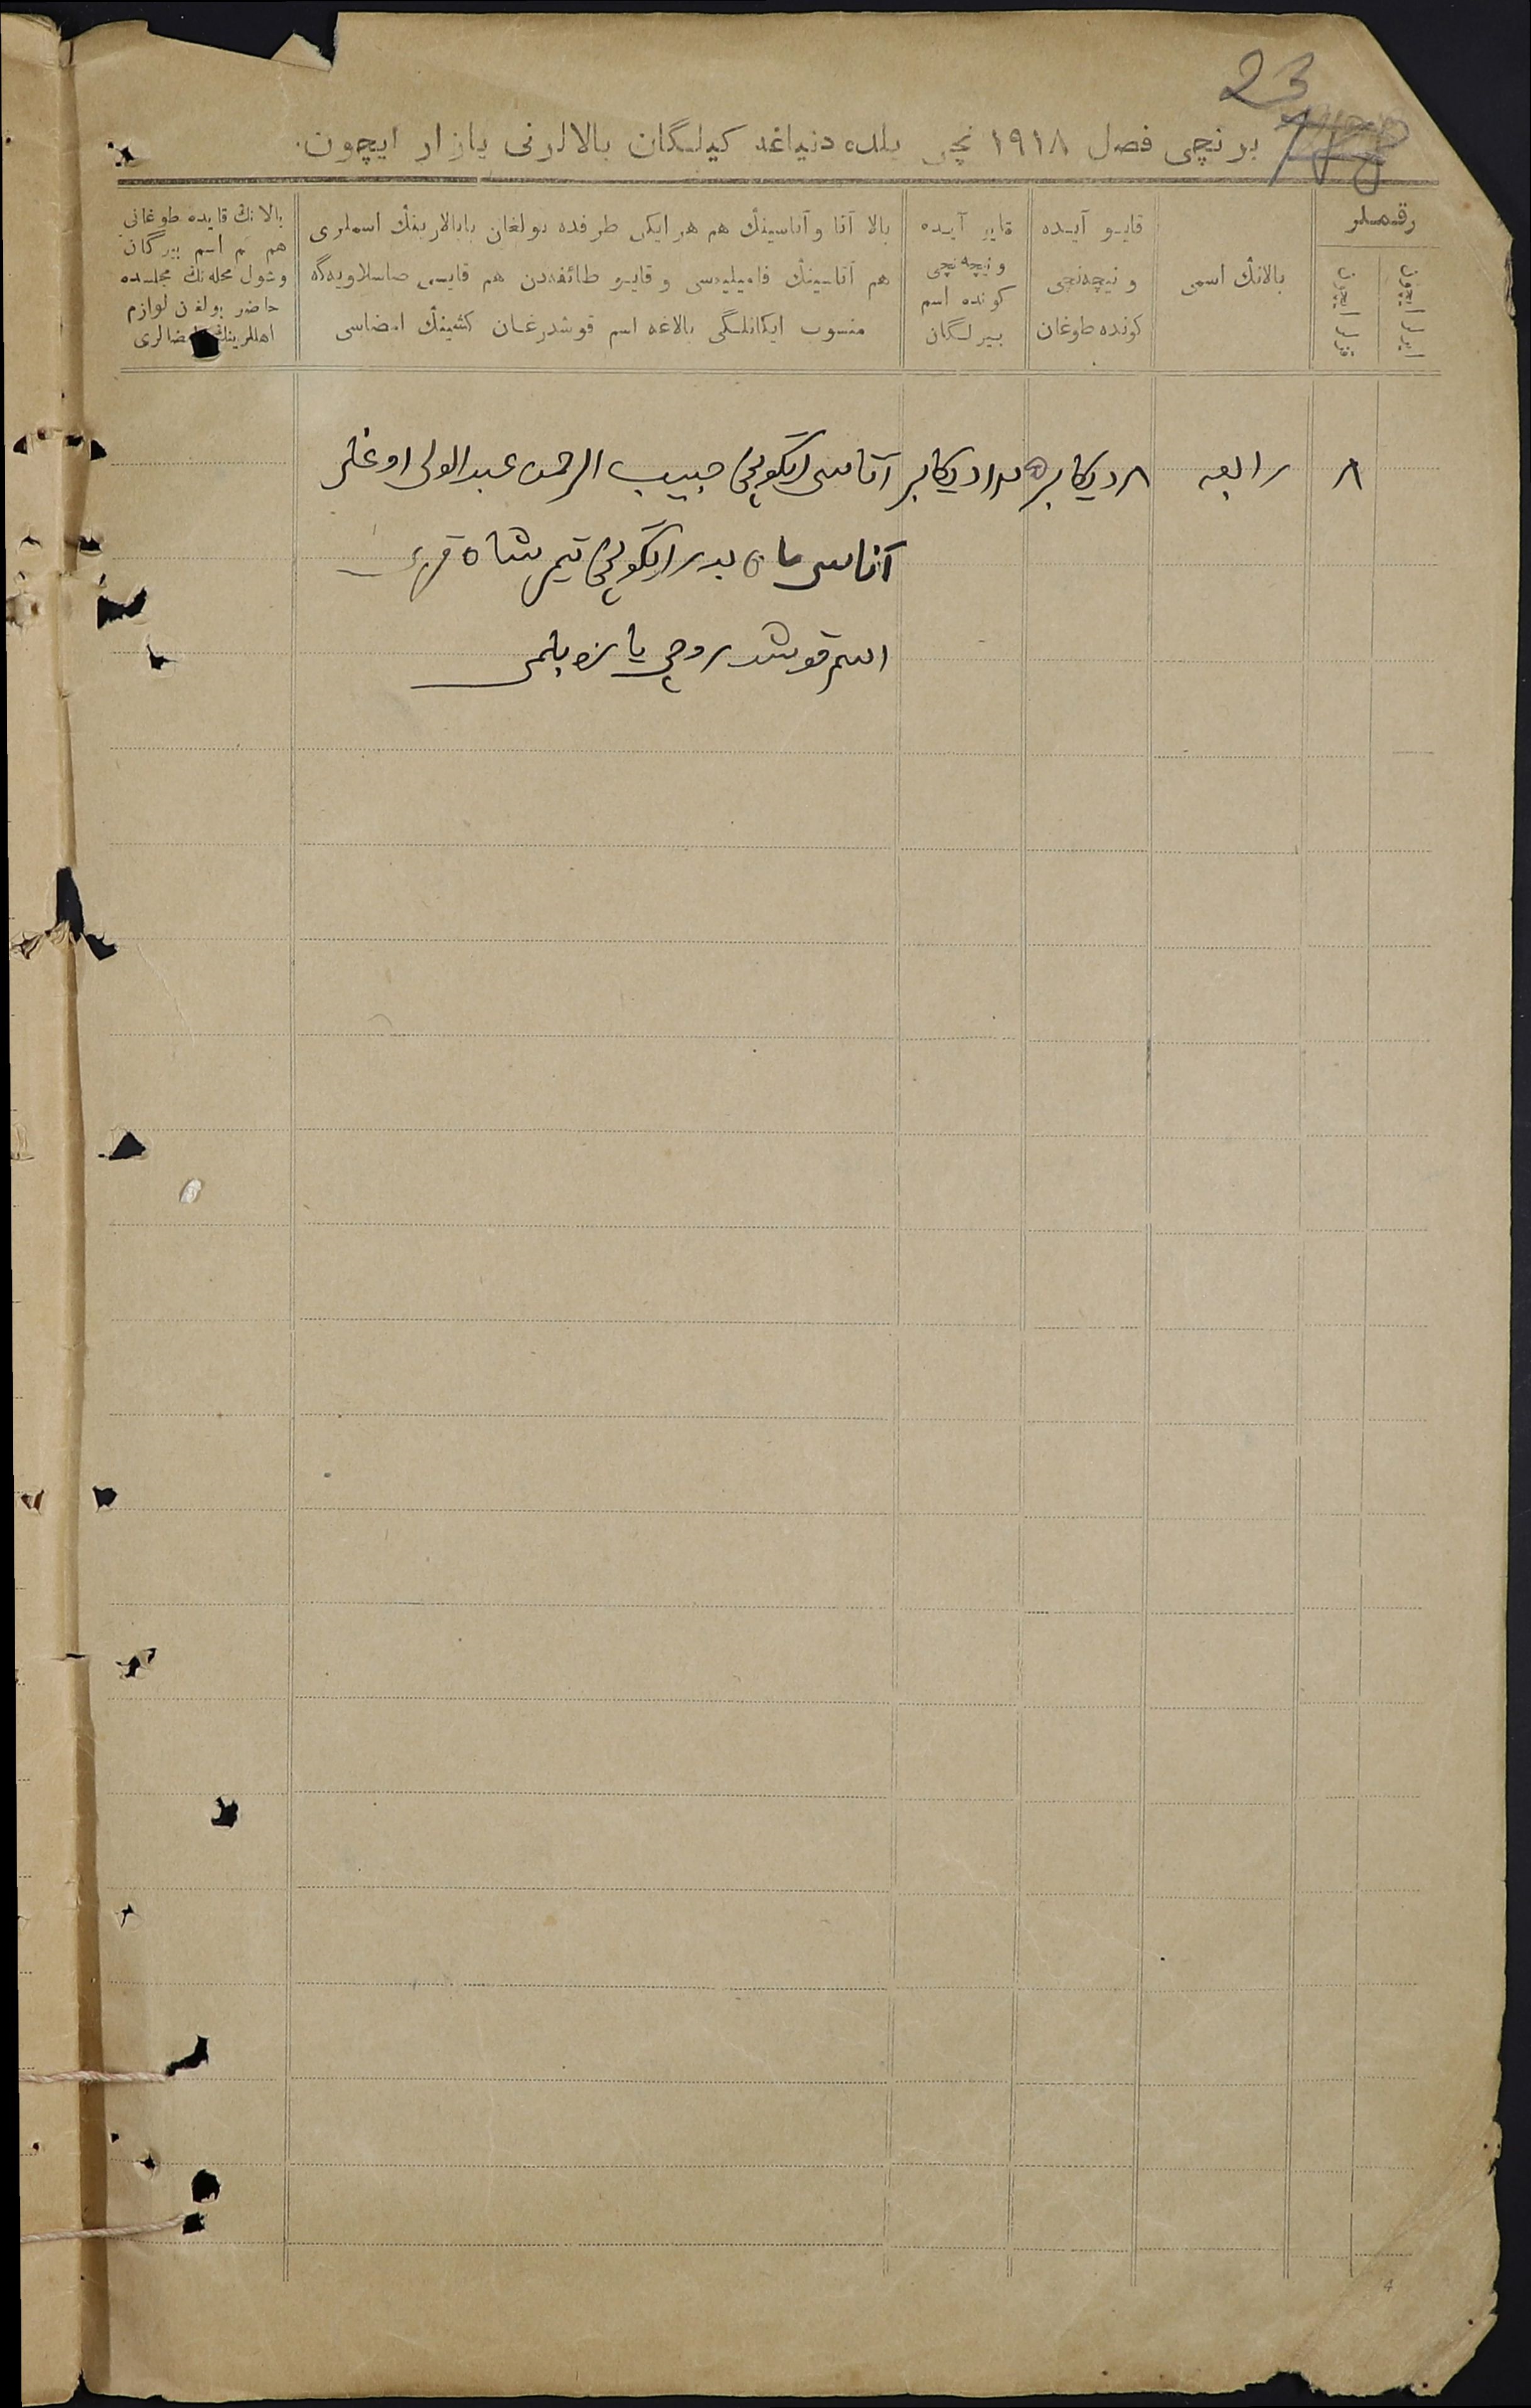 23
برنچی فصل ۱۹۱۸ نچی یلده دنیاغه کیلگان بالالرنی یازار ایچون.
رقملر
ایرلر ایچون
قزلر ایچون
بالانڭ اسمی
قایو آیده
و نیچه‌نچی
کونده طوغان
قایو آیده
و نیچه‌نچی
کونده اسم
بیرلگان
بالا آتا و آناسینڭ هم هر ایکی طرفده بولغان بابالارینڭ اسملری
هم آتاسینڭ فامیلیه‌سی و قایو طائفه‌دن هم قایسی صاسلاویه‌گه
منسوب ایکانلگی بالاغه اسم قوشدرغان کشینڭ امضاسی
بالانڭ قایده طوغانی
هم اسم بیرگان
و شول محله‌نڭ مجلسده
حاضر بولغان لوازم
اهللرینڭ امضالری
۸
رابعه
۸ دیکابر
دیکابر
آتاسی ایگونچی حبیب الرحمن عبدالولی اوغلی
آناسی ماه بدر ایگونچی تیمرشاه قزی
اسم قوشدروچی یازو بلمی